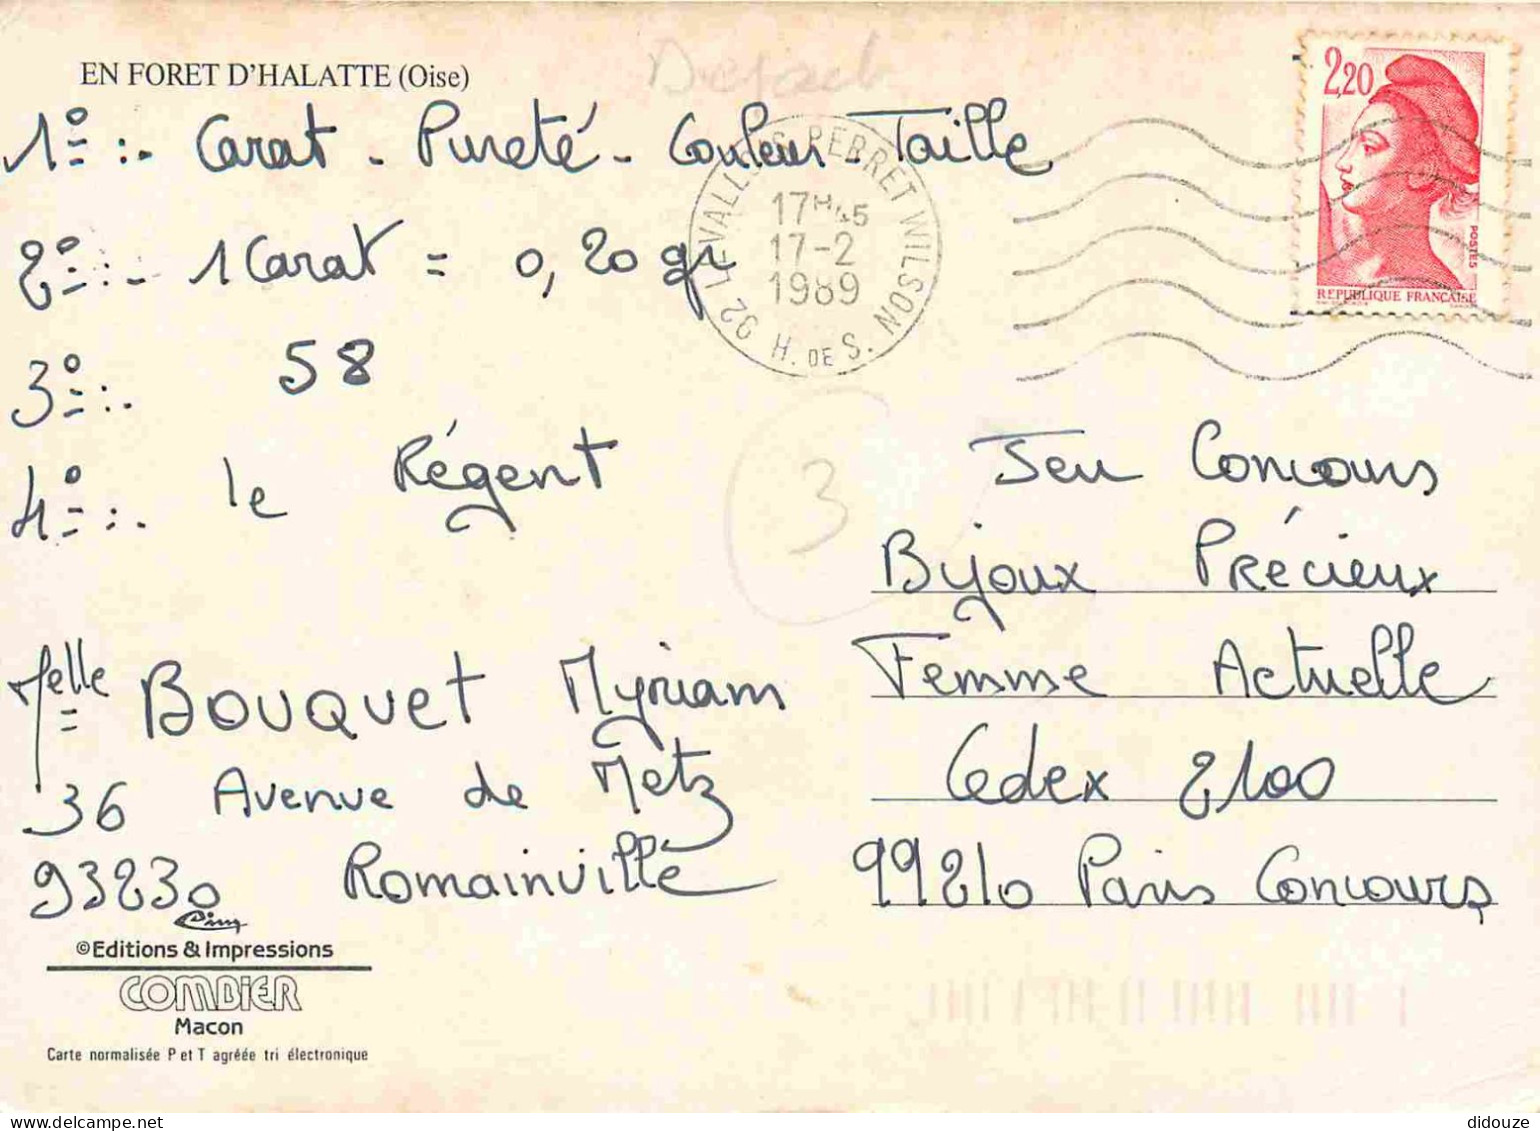 EN FORET D'HALATTE (Oise)
1º :- Carat - Pureté - Couleur - Taille
2º :- 1 Carat = 0,20 gr
3º :- 58
4º :- le Régent
Melle BOUQUET Myriam
36 Avenue de Metz
93230 Romainville
Cim
©Editions & Impressions
COMBIER
Macon
Carte normalisée P et T agréée tri électronique
92 LEVALLOIS-PERRET WILSON
17H45
17-2
1989
H. DE S.
2,20
POSTES
REPUBLIQUE FRANÇAISE
3
Jeu Concours
Bijoux Précieux
Femme Actuelle
Cedex 2100
99210 Paris Concours
delcampe.net
didouze